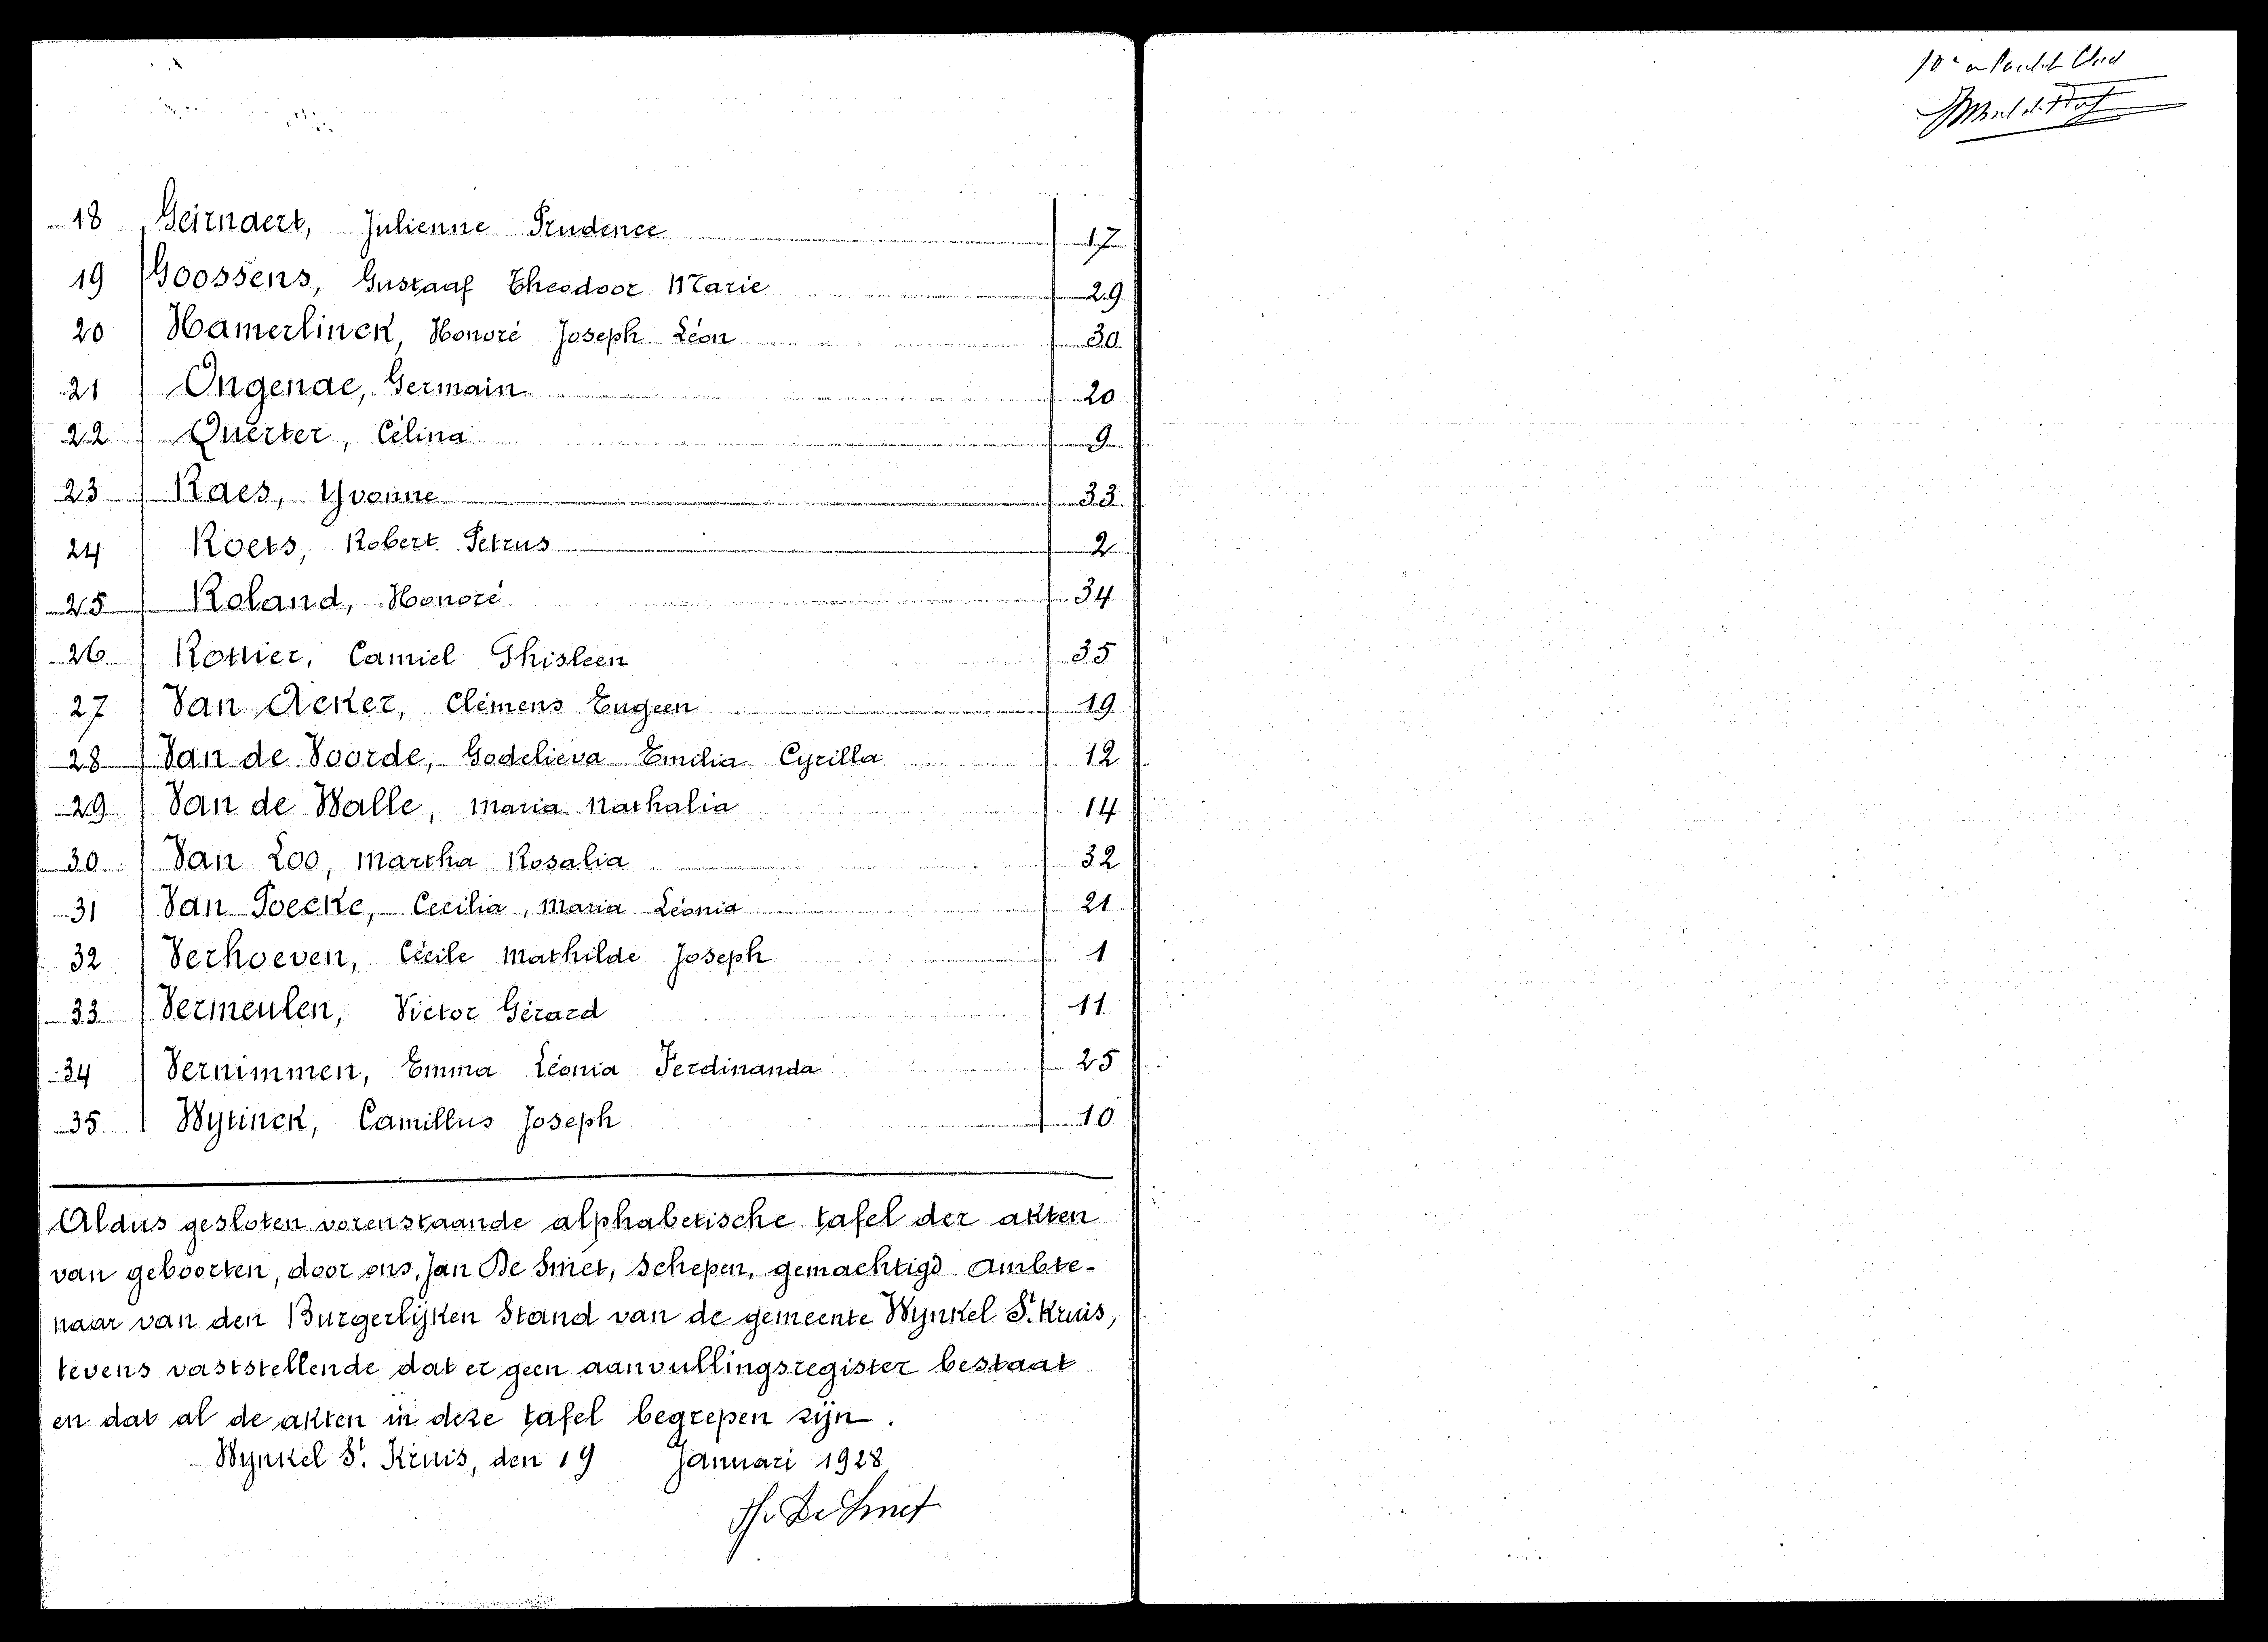 18 Geirnaert, Julienne Prudence 17
19 Goossens, Gustaaf Theodoor Marie 29
20 Hamerlinck, Honoré Joseph Léon 30
21 Ongenae, Germain 20
22 Querter, Célina 9
23 Raes, Yvonne 33
24 Roets, Robert Petrus 2
25 Roland, Honoré 34
26 Rottier, Camiel Ghisleen 35
27 Van Acker, Clémens Eugeen 19
28 Van de Voorde, Godelieva Emilia Cyrilla 12
29 Van de Walle, Maria Nathalia 14
30 Van Loo, Martha Rosalia 32
31 Van Poecke, Cecilia, Maria Léonia 21
32 Verhoeven, Cécile Mathilde Joseph 1
33 Vermeulen, Victor Gérard 11
34 Vernimmen, Emma Léonia Ferdinanda 25
35 Wytinck, Camillus Joseph 10
Aldus gesloten vorenstaande alphabetische tafel der akten
van geboorten, door ons, Jan De Smet, Schepen, gemachtigd Ambte-
naar van den Burgerlijken Stand van de gemeente Wynkel St. Kruis,
tevens vaststellende dat er geen aanvullingsregister bestaat
en dat al de akten in deze tafel begrepen zijn.
Wynkel St. Kruis, den 19 Januari 1928
De Smet